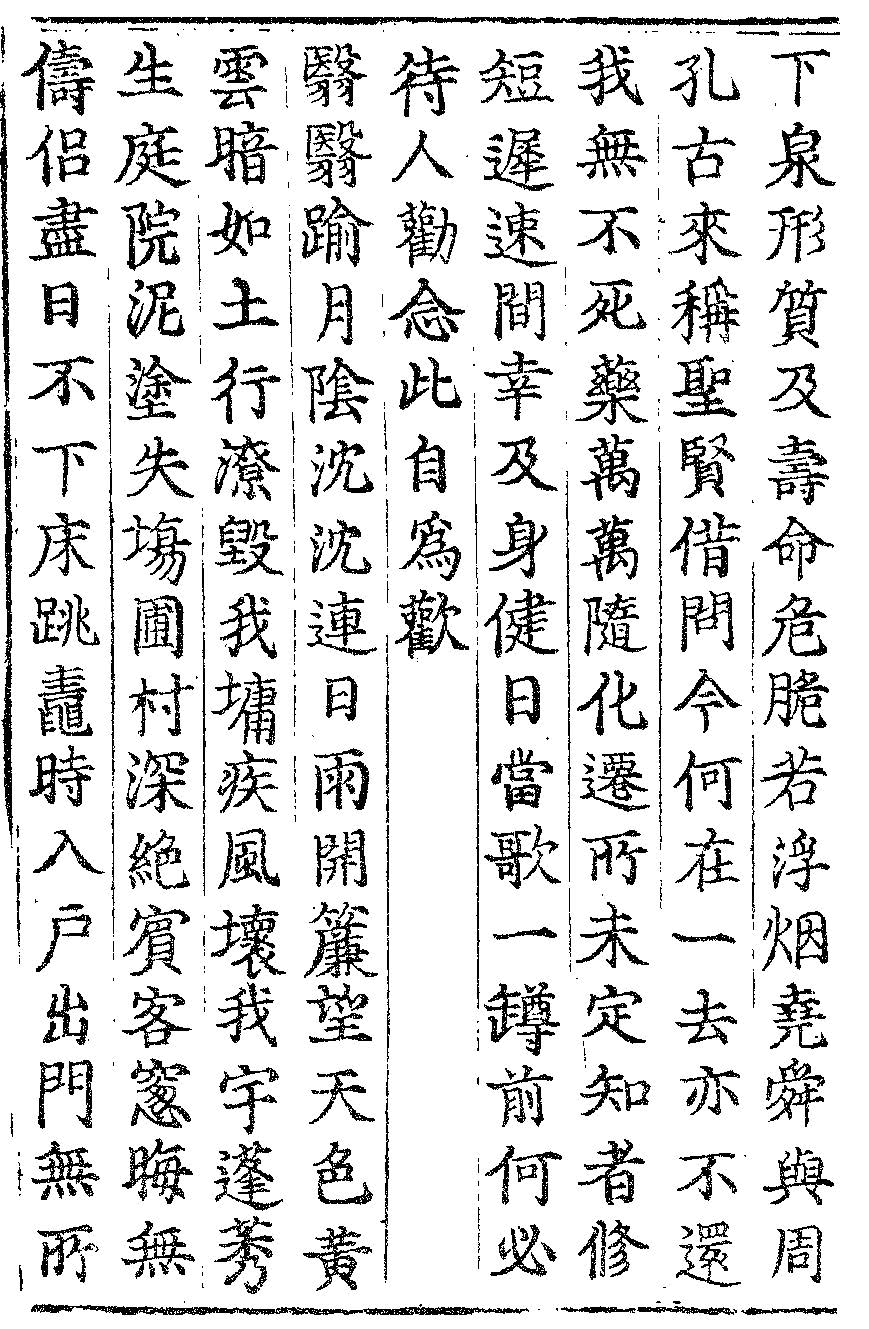 下泉形質及壽命危脆若浮烟堯舜與周
孔古來稱聖賢借問今何在一去亦不還
我無不死藥萬萬隨化遷所未定知者修
短遲速間幸及身健日當歌一罇前何必
待人勸念此自爲歡
翳翳踰月陰沈沈連日雨開簾望天色黃
雲暗如土行潦毀我墉疾風壞我宇蓬莠
生庭院泥塗失塲圃村深絶賓客窻晦無
儔侶盡日不下床跳鼃時入戶出門無所